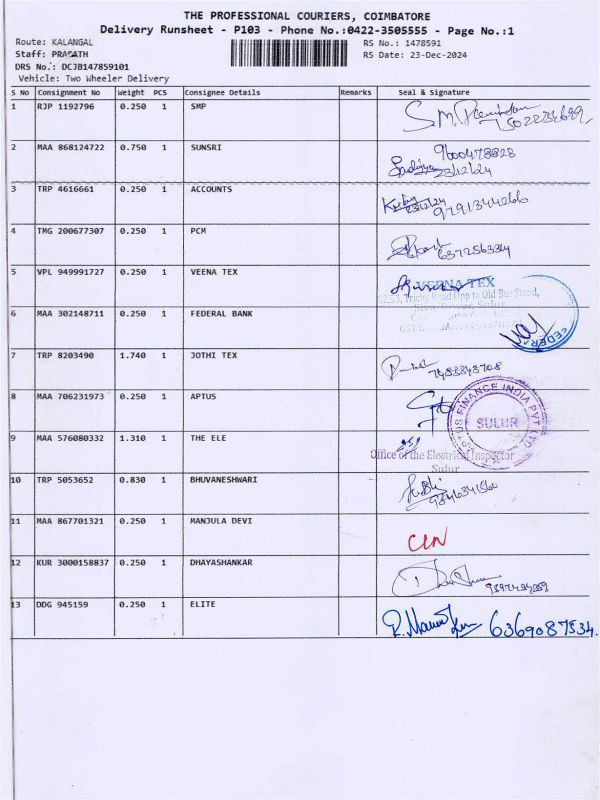 THE PROFESSIONAL COURIERS, COIMBATORE
Delivery Runsheet - P103 - Phone No.:0422-3505555 - Page No.:1
Route: KALANGAL RS No.: 1478591
Staff: PRASATH RS Date: 23-Dec-2024
DRS No.: DCJB147859101
Vehicle: Two Wheeler Delivery
S No Consignment No Weight PCS Consignee Details Remarks Seal & Signature
1 RJP 1192796 0.250 1 SMP
2 MAA 868124722 0.750 1 SUNSRI 9600478828
23/12/24
3 TRP 4616661 0.250 1 ACCOUNTS 23/12/24 9791344266
4 TMG 200677307 0.250 1 PCM
5 VPL 949991727 0.250 1 VEENA TEX VEENA TEX
Trichy Road Opp to Old Bus Stand,
6 MAA 302148711 0.250 1 FEDERAL BANK
7 TRP 8203490 1.740 1 JOTHI TEX
8 MAA 706231973 0.250 1 APTUS APTUS FINANCE INDIA PVT LTD
SULUR
9 MAA 576080332 1.310 1 THE ELE
Office of the Electrical Inspector
Sulur
10 TRP 5053652 0.830 1 BHUVANESHWARI
11 MAA 867701321 0.250 1 MANJULA DEVI
12 KUR 3000158837 0.250 1 DHAYASHANKAR
13 DDG 945159 0.250 1 ELITE 6369087534.